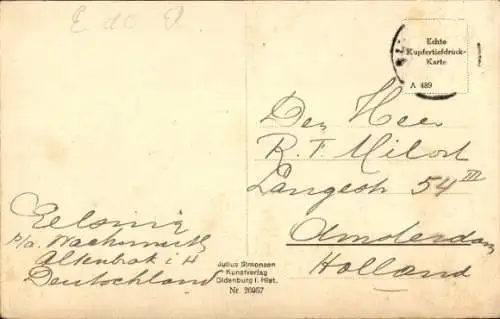 E de P
Echte
Kupfertiefdruck-
Karte
A 489
Den Heer
R. F. Milort
Langestr 54 III
Amsterdam
Holland
p/a. Wachsmuth
Altenbrak i H
Deutschland
Julius Simonsen
Kunstverlag
Oldenburg i. Hlst.
Nr. 26957